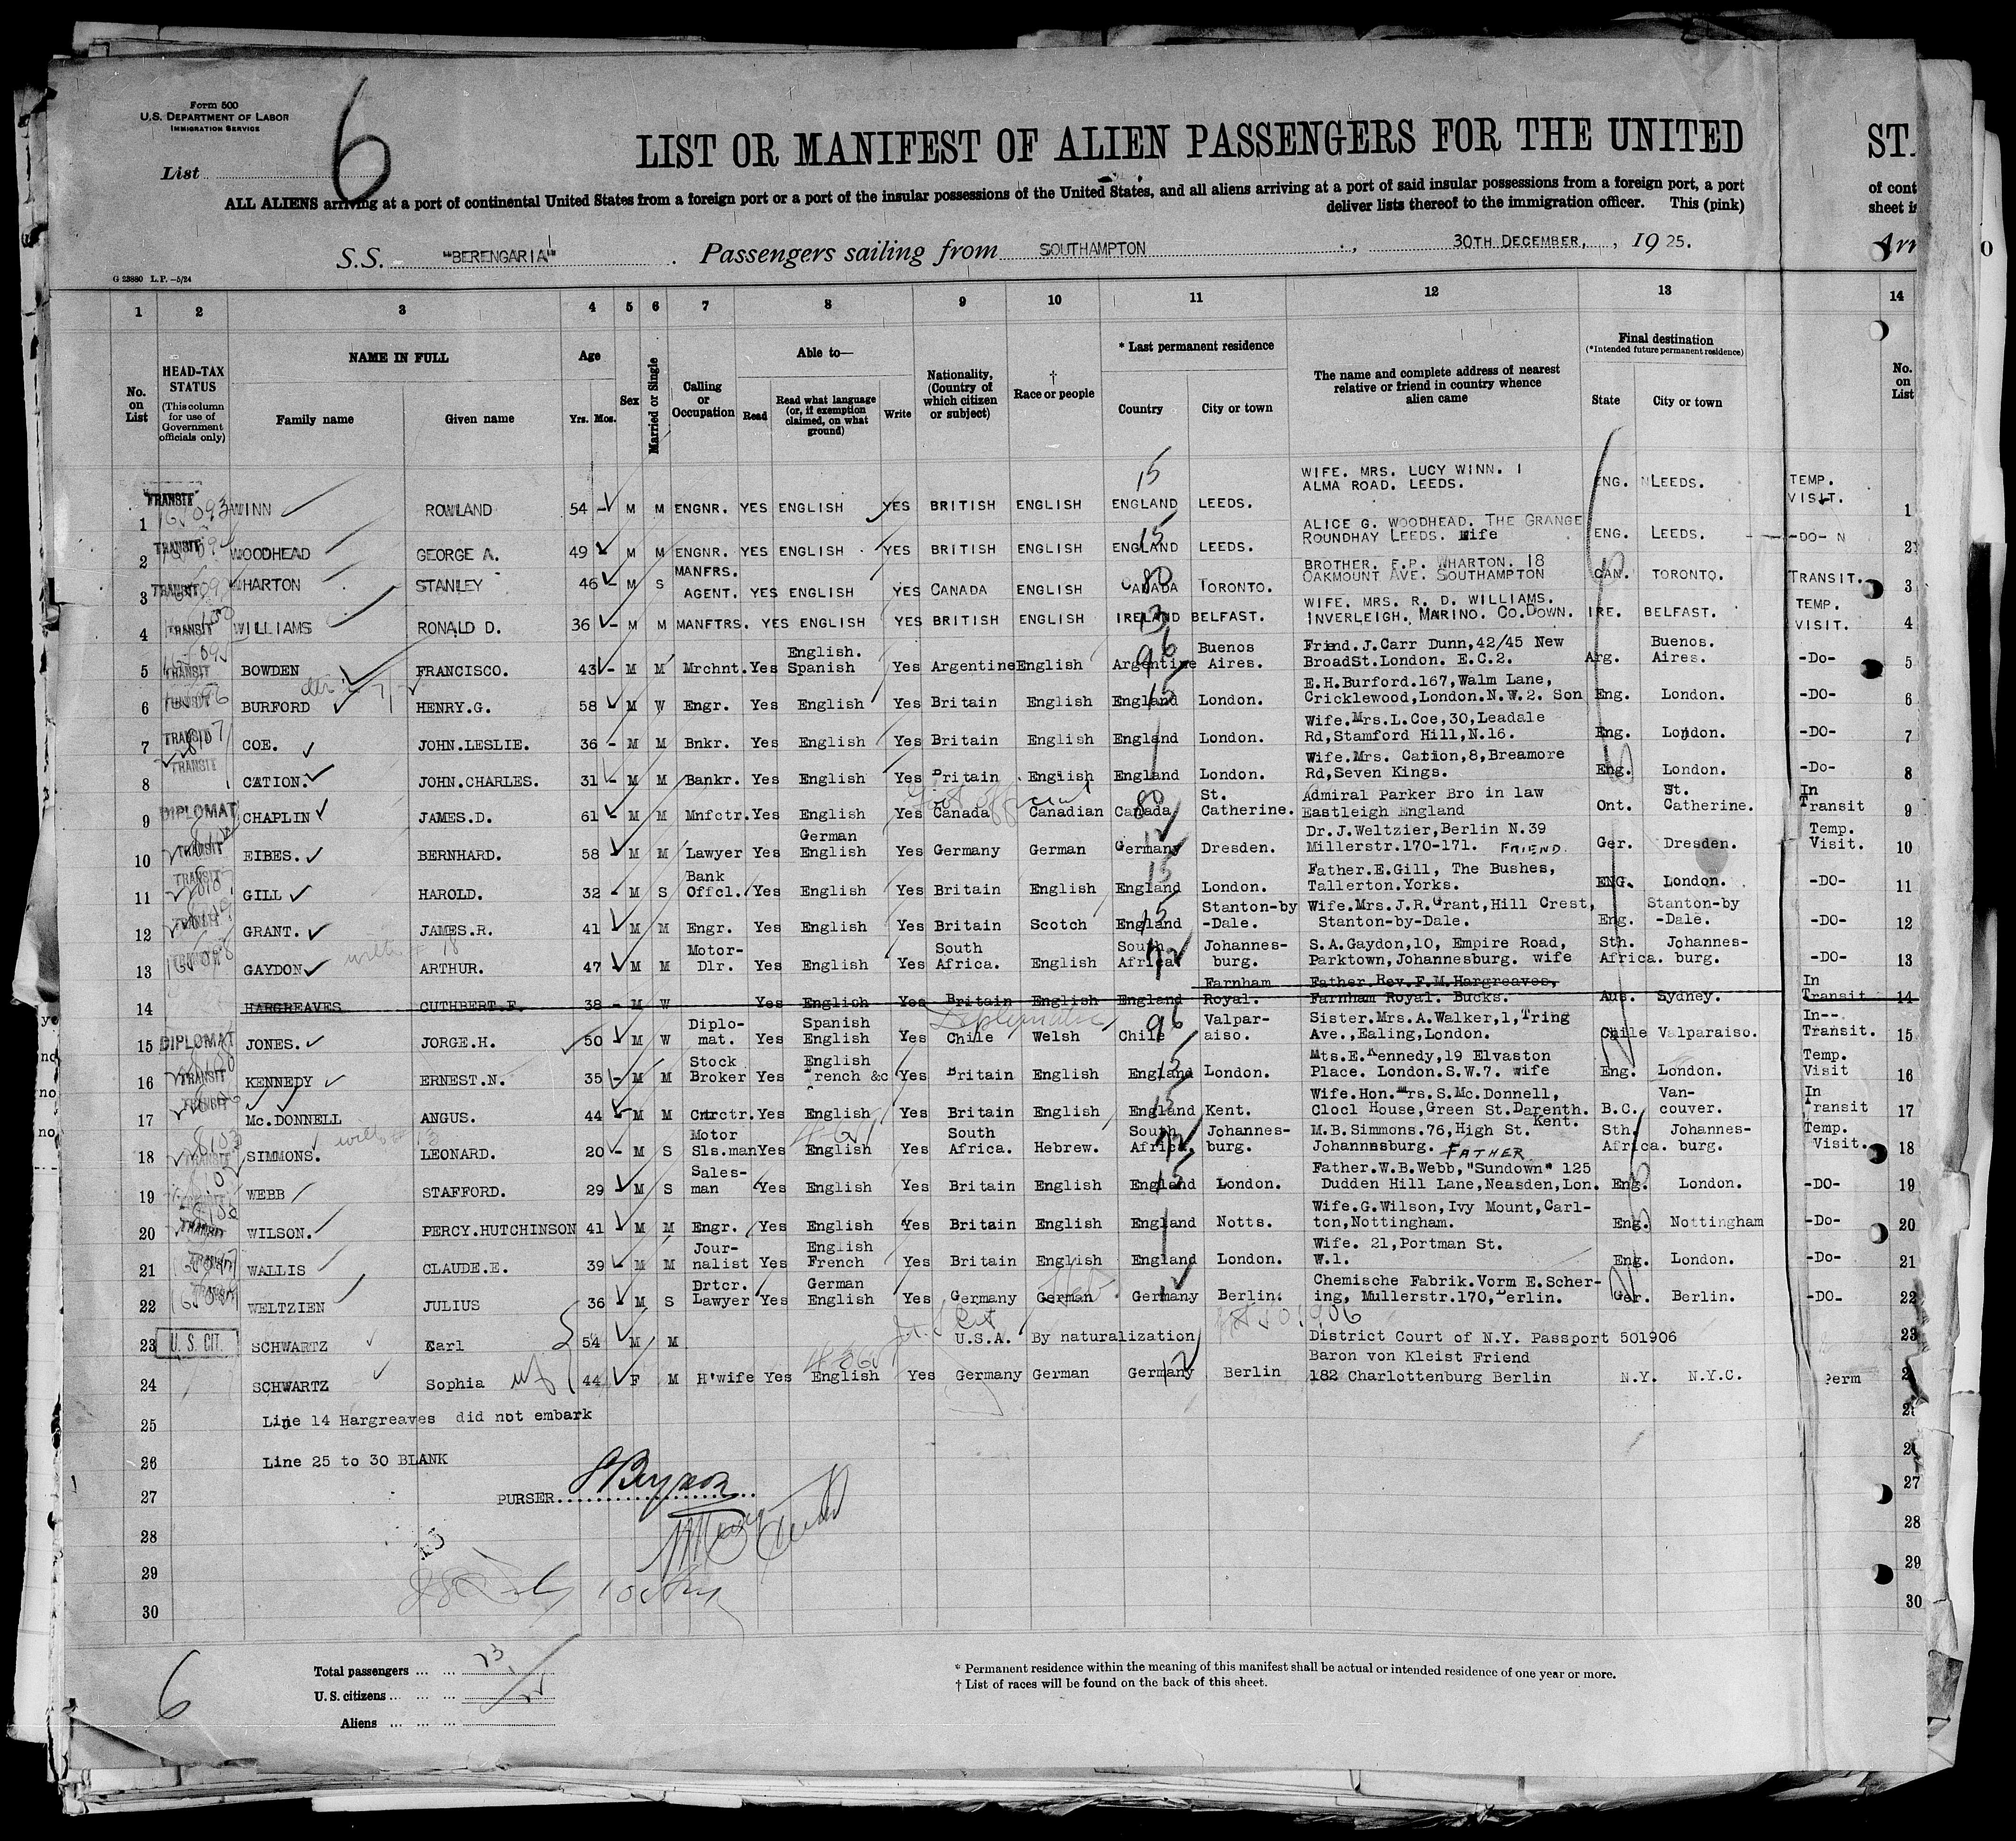 Form 500
U.S. DEPARTMENT OF LABOR
IMMIGRATION SERVICE
List
6
LIST OR MANIFEST OF ALIEN PASSENGERS FOR THE UNITED
ALL ALIENS arriving at a port of continental United States from a foreign port or a port of the insular possessions of the United States, and all aliens arriving at a port of said insular possessions from a foreign port, a port
deliver lists thereof to the immigration officer. This (pink)
S.S. "BERENGARIA" Passengers sailing from SOUTHAMPTON, 30TH DECEMBER, 1925.
G 23880 L.P.—5/24
1 2 3 4 5 6 7 8 9 10 11 12 13 14
No. on List
HEAD-TAX STATUS (This column for use of Government officials only)
NAME IN FULL
Family name Given name
Age
Yrs. Mos.
Sex
Married or Single
Calling or Occupation
Able to—
Read
Read what language (or, if exemption claimed, on what ground)
Write
Nationality, (Country of which citizen or subject)
† Race or people
* Last permanent residence
Country City or town
The name and complete address of nearest relative or friend in country whence alien came
Final destination
(*Intended future permanent residence)
State City or town
No. on List
1 TRANSIT WINN ROWLAND 54 - M M ENGNR. YES ENGLISH YES BRITISH ENGLISH ENGLAND LEEDS. WIFE. MRS. LUCY WINN. 1 ALMA ROAD. LEEDS. ENG. LEEDS. TEMP. VISIT. 1
2 TRANSIT WOODHEAD GEORGE A. 49 - M M ENGNR. YES ENGLISH YES BRITISH ENGLISH ENGLAND LEEDS. ALICE G. WOODHEAD. THE GRANGE ROUNDHAY LEEDS. Wife ENG. LEEDS. -DO- 2
3 TRANSIT WHARTON STANLEY 46 - M S MANFRS. AGENT. YES ENGLISH YES CANADA ENGLISH CANADA TORONTO. BROTHER. F.P. WHARTON. 18 OAKMOUNT AVE. SOUTHAMPTON CAN. TORONTO. TRANSIT. 3
4 TRANSIT WILLIAMS RONALD D. 36 - M M MANFTRS. YES ENGLISH YES BRITISH ENGLISH IRELAND BELFAST. WIFE. MRS. R. D. WILLIAMS. INVERLEIGH. MARINO. CO.DOWN. IRE. BELFAST. TEMP. VISIT. 4
5 TRANSIT BOWDEN FRANCISCO. 43 - M M Mrchnt. Yes English. Spanish Yes Argentine English Argentine Buenos Aires. Friend. J.Carr Dunn,42/45 New BroadSt.London. E.C.2. Arg. Buenos. Aires. -Do- 5
6 TRANSIT BURFORD HENRY.G. 58 M W Engr. Yes English Yes Britain English England London. E.H.Burford.167,Walm Lane, Cricklewood,London.N.W.2. Son Eng. London. -DO- 6
7 TRANSIT COE. JOHN.LESLIE. 36 - M M Bnkr. Yes English Yes Britain English England London. Wife.Mrs.L.Coe,30,Leadale Rd,Stamford Hill,N.16. Eng. London. -DO- 7
8 TRANSIT CATION. JOHN.CHARLES. 31 - M M Bankr. Yes English Yes Britain English England London. Wife.Mrs. Cation,8,Breamore Rd,Seven Kings. Eng. London. -Do- 8
9 DIPLOMAT CHAPLIN JAMES.D. 61 - M M Mnfctr. Yes English Yes Canada Canadian Canada St. Catherine. Admiral Parker Bro in law Eastleigh England Ont. St. Catherine. In Transit 9
10 TRANSIT EIBES. BERNHARD. 58 M M Lawyer Yes German English Yes Germany German Germany Dresden. Dr.J.Weltzier,Berlin N.39 Millerstr.170-171. FRIEND. Ger. Dresden. Temp. Visit. 10
11 TRANSIT GILL HAROLD. 32 - M S Bank Offcl. Yes English Yes Britain English England London. Father.E.Gill, The Bushes, Tallerton.Yorks. ENG. London. -DO- 11
12 TRANSIT GRANT. JAMES.R. 41 M M Engr. Yes English Yes Britain Scotch England Stanton-by -Dale. Wife.Mrs.J.R.Grant,Hill Crest, Stanton-by-Dale. Eng. Stanton-by -Dale. -DO- 12
13 TRANSIT GAYDON ARTHUR. 47 - M M Motor- Dlr. Yes English Yes South Africa. English South Africa Johannes- burg. S.A.Gaydon,10, Empire Road, Parktown,Johannesburg. wife Sth. Africa. Johannes- burg. -DO- 13
14 HARGREAVES CUTHBERT.F. 38 - M W Yes English Yes Britain English England Farnham Royal. Father.Rev.F.M.Hargreaves, Farnham Royal. Bucks. Aus. Sydney. In Transit 14
15 DIPLOMAT JONES. JORGE.H. 50 M W Diplo- mat. Yes Spanish English Yes Chile Welsh Chile Valpar- aiso. Sister.Mrs.A.Walker,1,Tring Ave.,Ealing,London. Chile Valparaiso. In-- Transit. 15
16 TRANSIT KENNEDY ERNEST.N. 35 - M M Stock Broker Yes English French &c Yes Britain English England London. Mts.E.Kennedy,19 Elvaston Place. London.S.W.7. wife Eng. London. Temp. Visit 16
17 TRANSIT Mc.DONNELL ANGUS. 44 M M Cntrctr. Yes English Yes Britain English England Kent. Wife.Hon.Mrs.S.Mc.Donnell, Clocl House,Green St.Darenth. Kent. B.C. Van- couver. In Transit 17
18 TRANSIT SIMMONS. LEONARD. 20 - M S Motor Sls.man Yes English Yes South Africa. Hebrew. South Africa. Johannes- burg. M.B.Simmons.76,High St. Johannnsburg. FATHER Sth. Africa. Johannes- burg. Temp. Visit. 18
19 WEBB STAFFORD. 29 M S Sales- man Yes English Yes Britain English England London. Father.W.B.Webb,"Sundown" 125 Dudden Hill Lane,Neasden,Lon. Eng. London. -DO- 19
20 TRANSIT WILSON. PERCY.HUTCHINSON 41 M M Engr. Yes English Yes Britain English England Notts. Wife.G.Wilson,Ivy Mount,Carl- ton,Nottingham. Eng. Nottingham -Do- 20
21 TRANSIT WALLIS CLAUDE.E. 39 - M M Jour- nalist Yes English French Yes Britain English England London. Wife. 21,Portman St. W.1. Eng. London. -Do- 21
22 WELTZIEN JULIUS 36 - M S Drtcr. Lawyer Yes German English Yes Germany German Germany Berlin. Chemische Fabrik.Vorm E.Scher- ing, Mullerstr.170,Berlin. Ger. Berlin. -DO- 22
23 U. S. CIT. SCHWARTZ Earl 54 M M U.S.A. By naturalization District Court of N.Y. Passport 501906 23
24 SCHWARTZ Sophia wf 44 F M H'wife Yes English Yes Germany German Germany Berlin Baron von Kleist Friend 182 Charlottenburg Berlin N.Y. N.Y.C. Perm
25 Line 14 Hargreaves did not embark
26 Line 25 to 30 BLANK
27 PURSER 27
28 28
29 29
30 30
6
Total passengers ... ... 23
U. S. citizens ... ... ...
Aliens ... ... ...
* Permanent residence within the meaning of this manifest shall be actual or intended residence of one year or more.
† List of races will be found on the back of this sheet.